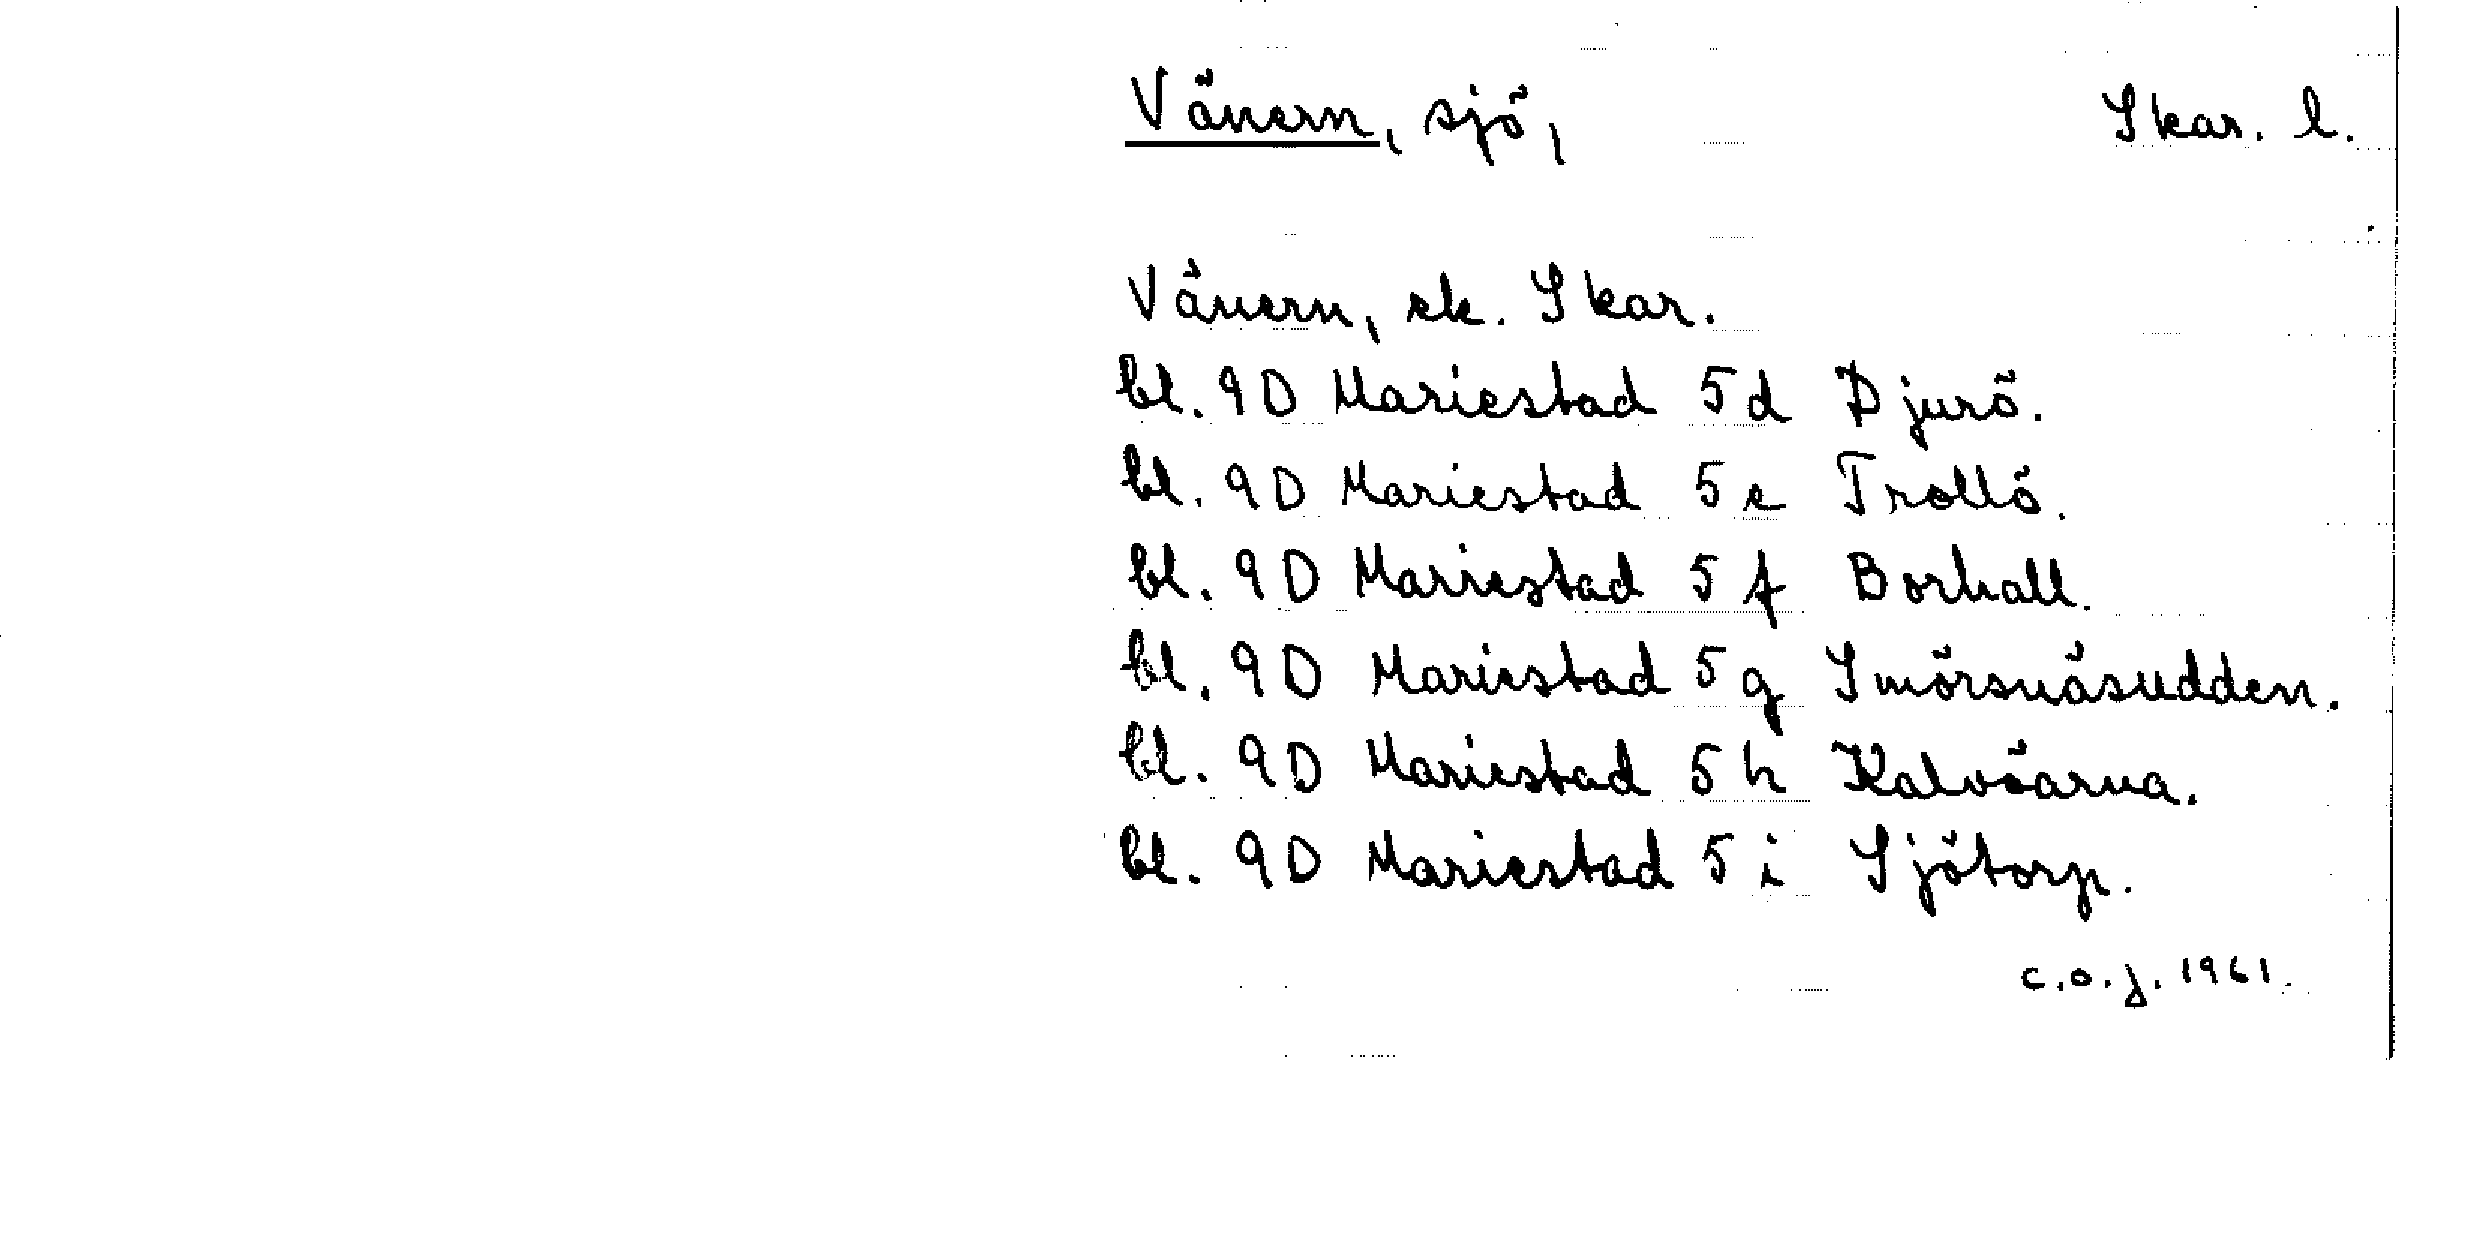 Vänern, sjö, Skar. l.
Vänern, ek. Skar.
bl. 9D Mariestad 5d Djurö.
bl. 9D Mariestad 5e Trollö.
bl. 9D Mariestad 5f Borhall.
bl. 9D Mariestad 5g Smörsnäsudden.
bl. 9D Mariestad 5h Kalvöarna.
bl. 9D Mariestad 5i Sjötorp.
c.o.j. 1961.